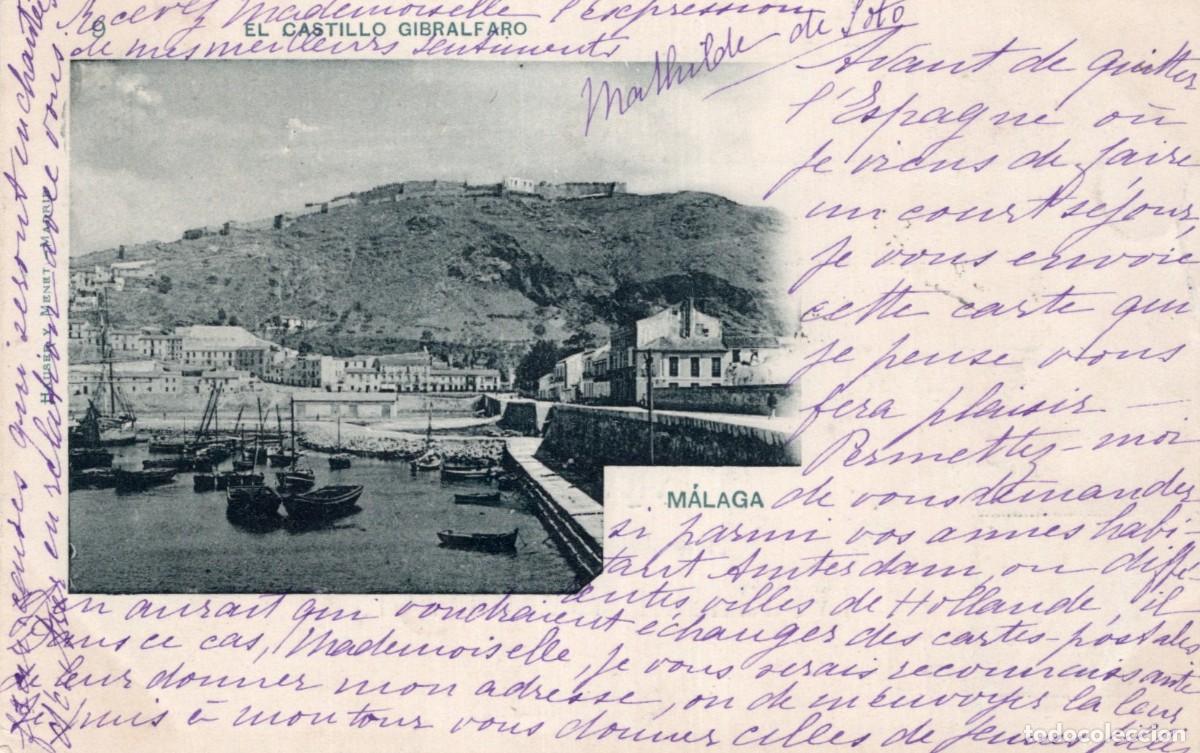 9
EL CASTILLO GIBRALFARO
HAUSER Y MENET.- MADRID
MÁLAGA
Avant de quitter
l'Espagne où
je viens de faire
un court séjour,
je vous envoie
cette carte qui
je pense vous
fera plaisir —
Permettez-moi
de vous demander
si parmi vos amies habi-
tant Amsterdam, ou diffé-
rentes villes de Hollande, il
en aurait qui voudraient échanger des cartes-postales
Dans ce cas, Mademoiselle, je vous serais reconnaissante
de leur donner mon adresse, ou de m'envoyer la leur
puis à mon tour vous donner celles de
qui seront enchantées
en relation avec vous
Recevez Mademoiselle l'expression
de mes meilleurs sentiments
Mathilde de Soto
todocoleccion